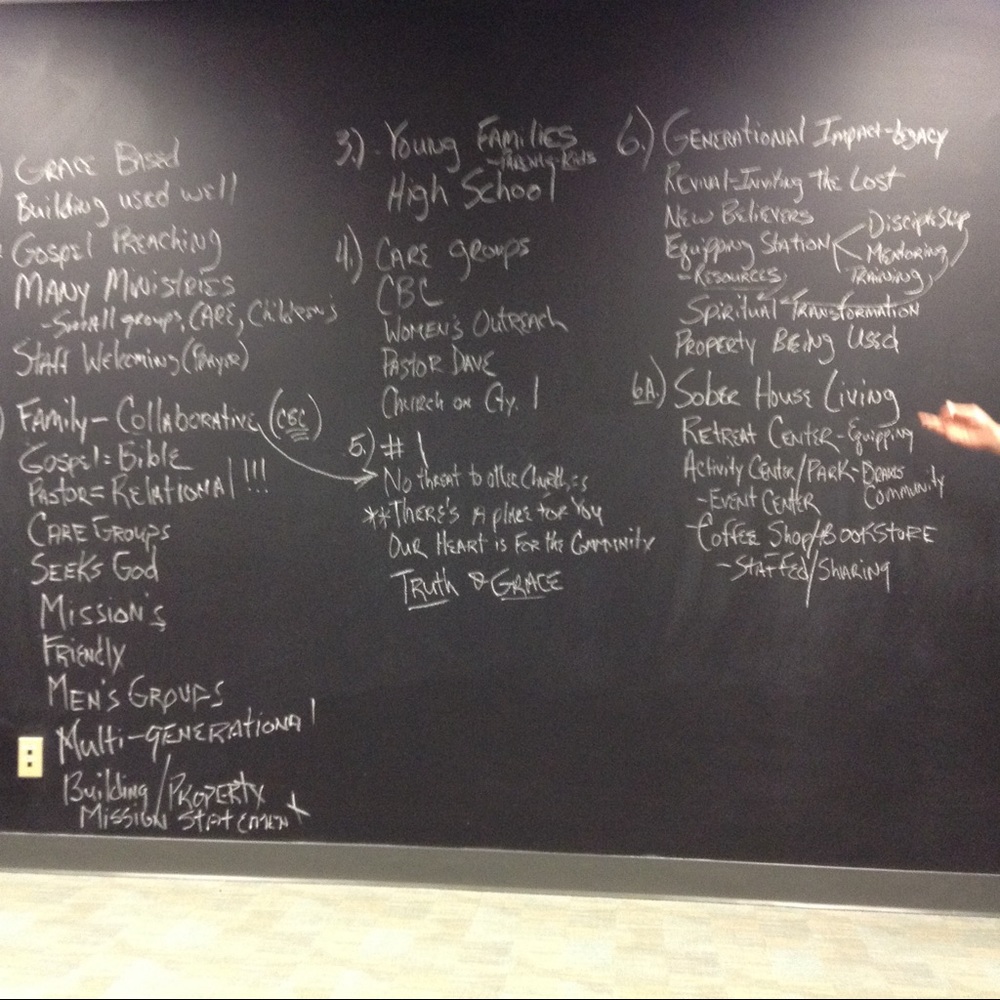 ) Grace Based
Building used well
Gospel Preaching
Many Ministries
-Small groups, Care, Children's
Staff Welcoming (Pastor)
) Family - Collaborative (CBC)
Gospel = Bible
Pastor = Relational !!!
Care Groups
Seeks God
Mission's
Friendly
Men's Groups
Multi-generational
Building/Property
Mission Statement
3.) Young Families
-Parents-Kids
High School
4.) Care groups
CBC
Women's Outreach
Pastor Dave
Church on Cty. I
5.) # 1
No threat to other Churches
**There's a place for you
Our Heart is for the Community
Truth & Grace
6.) Generational Impact-Legacy
Revival-Inviting the Lost
New Believers
Equipping Station < Discipleship
Mentoring
Training
-Resources
Spiritual Transformation
Property Being Used
6A.) Sober House Living
Retreat Center-Equipping
Activity Center/Park-Draws Community
-Event Center
Coffee Shop/Bookstore
-Staffed/Sharing